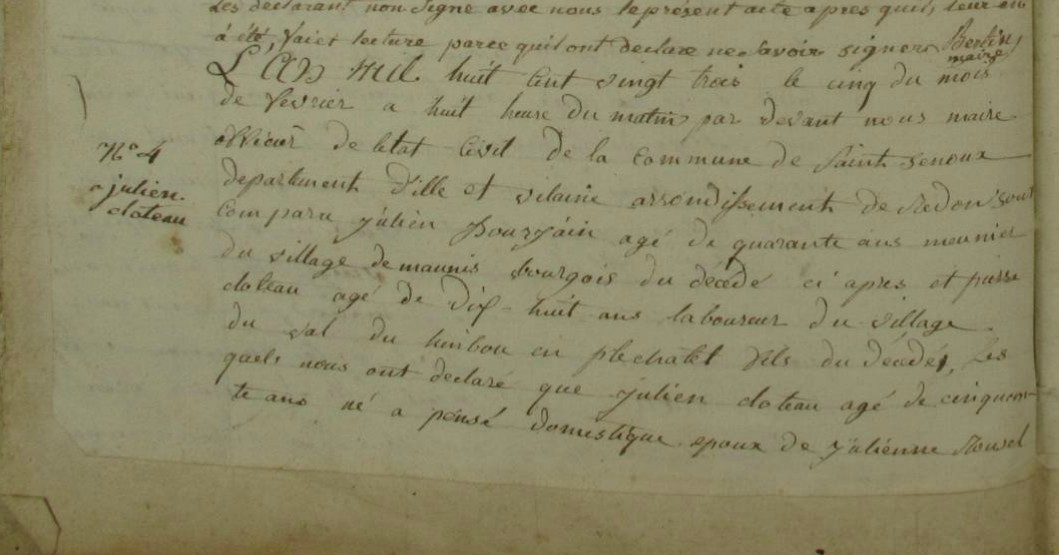 Les declarant non Signe avec nous le present acte apres quil leur en
à été faiet lecture parce quil ont declare ne Savoir signer Bertin
maire
L'an mil huit Cent vingt trois le cinq du mois
de fevrier a huit heure du matin par devant nous maire
officier de letat Civil de la Commune de Saint Senoux
departement d'ille et vilaine arrondissement de Redon Sont
N° 4
julien
doteau
Comparu julien agé de quarante ans meunier
du village de maunis bourgois du décédé ci apres et pierre
doteau agé de Dix-huit ans laboureur du village
du val du hinbou en plechatel fils du décédé, Les
quels nous ont declaré que julien doteau agé de cinquan-
te ans né a pensé Domestique epoux de julienne Rousel